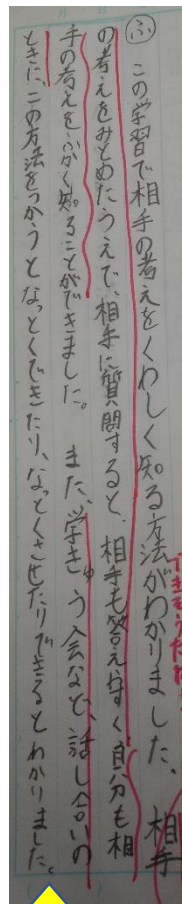 ふ この学習で相手の考えをくわしく知る方法がわかりました。相手
の考えをみとめたうえで、相手に質問すると、相手も答え安く、自分も相
手の考えをふかく知ることができました。また、学きゅう会など、話し合いの
ときに、この方法をつかうとなっとくできたり、なっとくさせたりできるとわかりました。